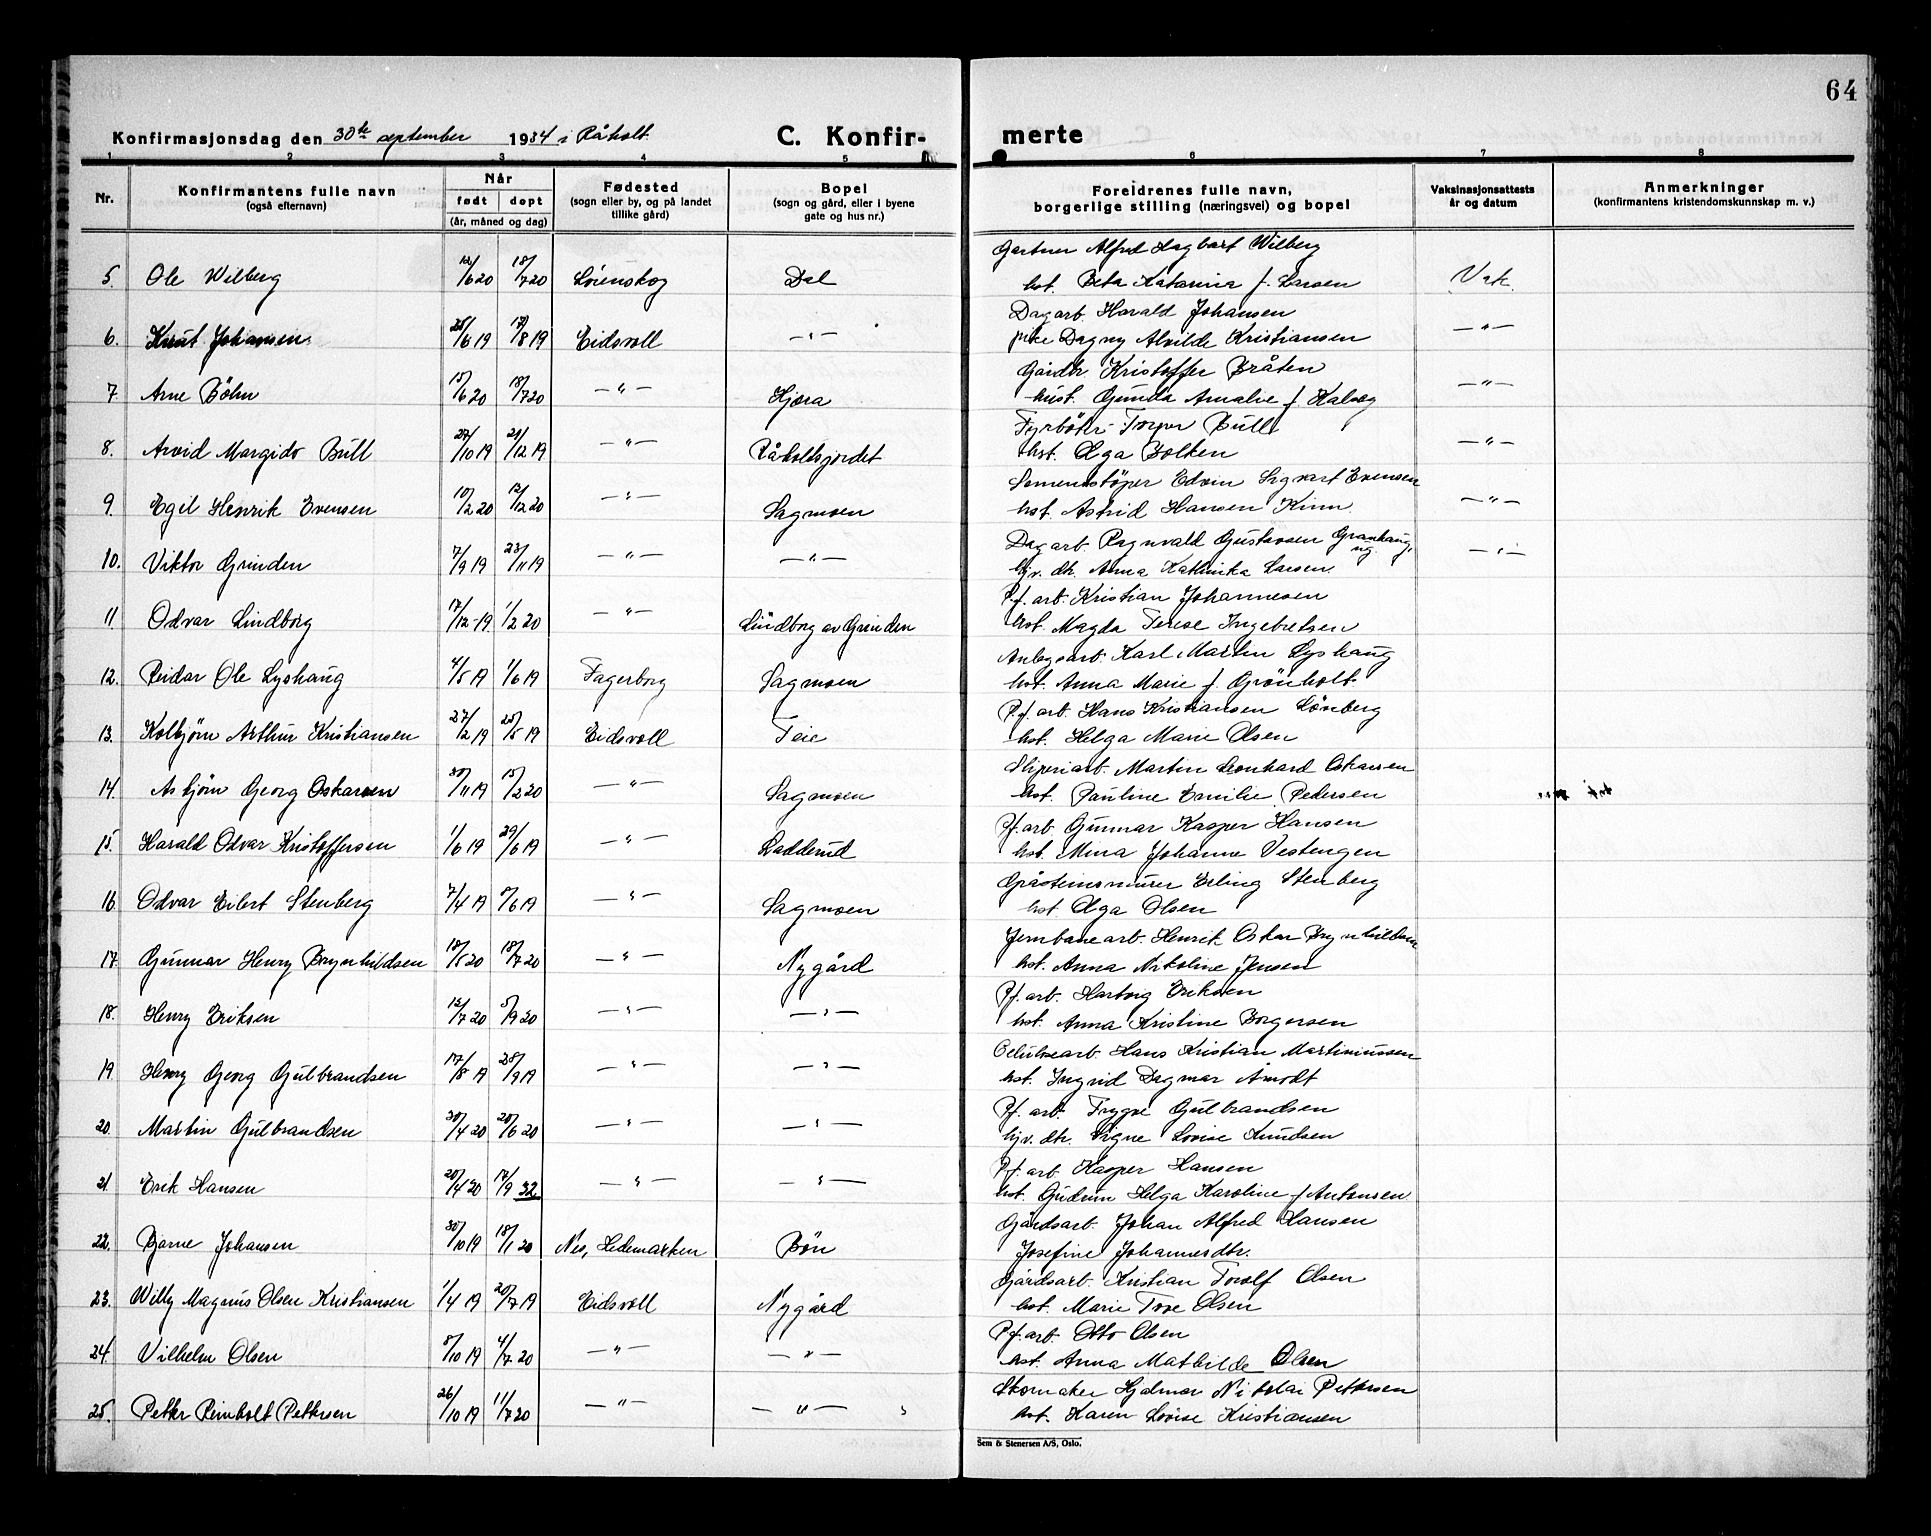 64
Konfirmasjonsdag den 30te september 1934 i Råholt. C. Konfir- merte
1 2 3 4 5 6 7 8
Nr. Konfirmantens fulle navn (også efternavn) Når født døpt (år, måned og dag) Fødested (sogn eller by, og på landet tillike gård) Bopel (sogn og gård, eller i byene gate og hus nr.) Foreldrenes fulle navn, borgerlige stilling (næringsvei) og bopel Vaksinasjonsattests år og datum Anmerkninger (konfirmantens kristendomskunnskap m. v.)
Gartner Alfred Dagbart Wilberg
5. Ole Wilberg 12/6 20 18/7 20 Lørenskog Dal hst. Beta Katarina f. Larsen Vak.
Dagarb. Harald Johansen
6. Knut Johansen 25/6 19 17/8 19 Eidsvoll —"— pike Dagny Alvilde Kristiansen —"—
Gårdbr. Kristoffer Bråten
7 Arne Böhn 15/6 20 18/7 20 —"— Hjera hust. Gunda Amalie f. Kalveg —"—
Fyrbøter Torger Bull
8. Arvid Margido Bull 27/10 19 21/12 19 —"— Råholtsjordet hst. Olga Bolken —"—
Sementstöper Edvin Sigvart Evensen
9. Egil Henrik Evensen 10/2 20 12/12 20 —"— Sagmoen hst. Astrid Hansen Kinn —"—
Dagarb. Ragnvald Gustavsen Granhaug,
10. Viktor Grinden 7/9 19 23/11 19 —"— —"— gv. dtr. Anna Kathinka Larsen —"—
P.f. arb. Kristian Johannesen
11 Odvar Lindborg 17/12-19 1/2 20 —"— Lindborg av Grinden hst. Magda Terese Ingebretsen
Anlegsarb. Karl Martin Lyshaug
12. Reidar Ole Lyshaug 4/5 19 1/6 19 Fagerborg Sagmoen hst. Anna Marie f. Grönholt.
P.f. arb. Hans Kristiansen Lönberg
13. Kolbjörn Arthur Kristiansen 27/2 19 25/5 19 Eidsvoll Teie hst. Helga Marie Olsen
Sliperiarb. Martin Leonhard Oskarsen
14. Asbjörn Georg Oskarsen 30/11 19 15/2 20 —"— Sagmoen hst. Pauline Emilie Pedersen
P.f. arb. Gunnar Kasper Hansen
15. Harald Odvar Kristoffersen 1/6 19 29/6 19 —"— Ladderud hst. Mina Johanne Vestengen
Gråsteinsmurer Erling Stenberg
16 Odvar Eilert Stenberg 7/4 19 8/6 19 —"— Sagmoen hst. Olga Olsen
Jernbanearb. Henrik Oskar Brynhildsen
17 Gunnar Henry Brynhildsen 18/5 20 18/7 20 —"— Nygård hst. Anna Nikoline Jensen
P.f. arb. Hartvig Eriksen
18. Henry Eriksen 12/7 20 5/9 20 —"— —"— hst. Anna Kristine Borgersen
Celulosearb. Hans Kristian Martiniussen
19 Henry Georg Gulbrandsen 17/8 19 28/9 19 —"— —"— hst. Ingrid Dagmar Åmodt
P.f. arb. Trygve Gulbrandsen
20. Martin Gulbrandsen 30/4 20 20/6 20 —"— —"— gv. dtr. Signe Lovise Knudsen
P.f. arb Kasper Hansen
21. Erik Hansen 20/4 20 17/9 32 —"— —"— hst. Gudrun Helga Karoline f Antonsen
Gårdsarb. Johan Alfred Hansen
22. Bjarne Johansen 30/10 19 18/1 20 Nes, Hedemarken Bön Josefine Johannesdtr.
Gårdsarb. Kristian Torolf Olsen
23. Willy Magnus Olsen Kristiansen 1/4 19 20/7 19 Eidsvoll Nygård hst. Marie Tove Olsen
P.f. arb. Otto Olsen
24. Vilhelm Olsen 8/10 19 4/7 20 —"— —"— hst. Anna Mathilde Olsen
Skomaker Hjalmar Nikolai Pettersen
25. Petter Reinholt Pettersen 26/10 19 11/7 20 —"— —"— hst. Karen Lovise Kristiansen
Sem & Stenersen A/S, Oslo.